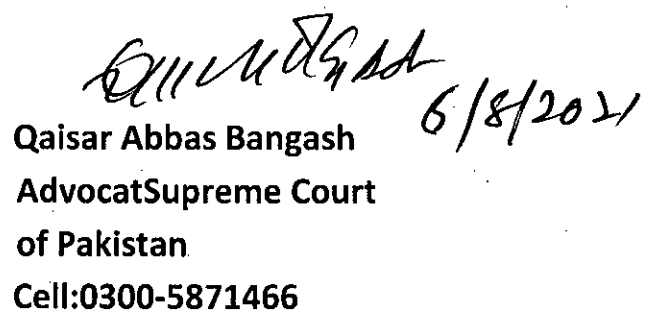 6/8/2021
Qaisar Abbas Bangash
AdvocatSupreme Court
of Pakistan
Cell:0300-5871466